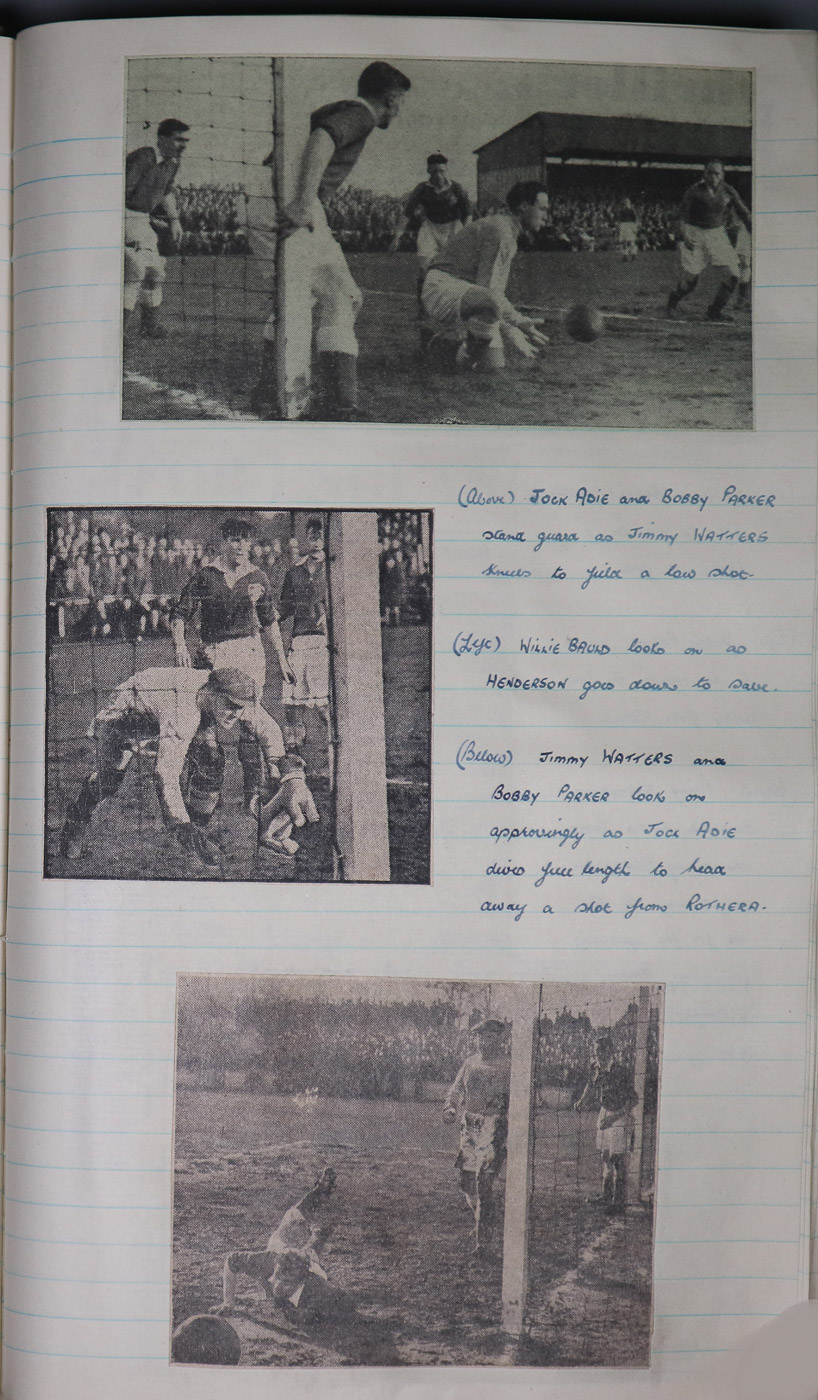 (Above) JOCK ADIE and BOBBY PARKER
stand guard as JIMMY WATTERS
kneels to field a low shot.
(Left) WILLIE BAULD looks on as
HENDERSON goes down to save.
(Below) JIMMY WATTERS and
BOBBY PARKER look on
approvingly as JOCK ADIE
dives full length to head
away a shot from ROTHERA.